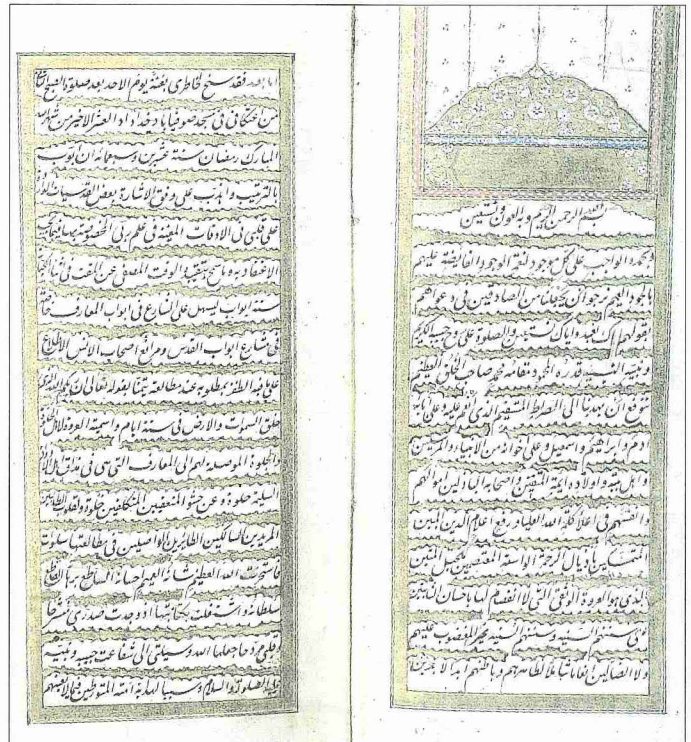 بسم الله الرحمن الرحيم وبه العون ونستعين
نحمد الواجب على كل موجود لنعمة الوجود الفايضة عليهم
باجود العميم نرجو ان يجعلنا من الصادقين في دعواهم
بقولهم اياك نعبد واياك نستعين والصلوة على روح حبيبه
ونبيه النبيه قدره المحمود مقامه محمد صاحب الخلق العظيم
نتوقع ان يهدينا الى الصراط المستقيم الذي انعم عليه وعلى ابائه
ادم وابراهيم واسمعيل وعلى اخوانه من الانبياء والمرسلين
واهل بيته واولاده ائمة المتقين واصحابه الباذلين اموالهم
وانفسهم في اعلا كلمة الله العليا ورفع اعلام الدين المبين
المتمسكين باذيال الرحمة الواسعة المعتصمين بحبل المتين
الذي هو العروة الوثقى التي لا انفصام لها باحسان
سنته السنية وسنته السنية غير المغضوب عليهم
ولا الضالين ظاهرهم وباطنهم ابدا
اما بعد فقد سنح لخاطري بغتة يوم الاحد بعد صلوة الصبح
من معتكفي في مسجد صوفياباد خداداد العشر الاخير من شهر
المبارك رمضان سنة عشرين وسبعمائة ان ابوب
بالترتيب واهذب على وفق الاشارة بعض القدسيات
على قلبي في الاوقات المعينة في علم
الاعتقاد به
ستة ابواب ليسهل على الشارع في ابواب المعارف
في مشارع ابواب القدس ومراتع اصحاب الانس الاطلاع
على ما فيه الظفر بمطلوبه عند مطالعته تيمنا بقوله تعالى ان ربكم الله الذي
خلق السموات والارض في ستة ايام واسميته العروة لاهل الخلوة
والجلوة الموصلة لهم الى المعارف التي هي في مذاق
السليمة حلوة وعن حشو المتعسفين المتكلفين خلوة ولقلوب الطالبين
المريدين السالكين الطايرين الواصلين في مطالعتها سلوة
فاستخرت الله العظيم شانه العميم احسانه الساطع برهانه
سلطانه واشتغلت بكتابتها اذ وجدت صدري منشرحا
وقلبي مروحا جعلها الله وسيلتي الى شفاعت حبيبه ونبيه
عليه الصلوة والسلام وسببا لهداية امته